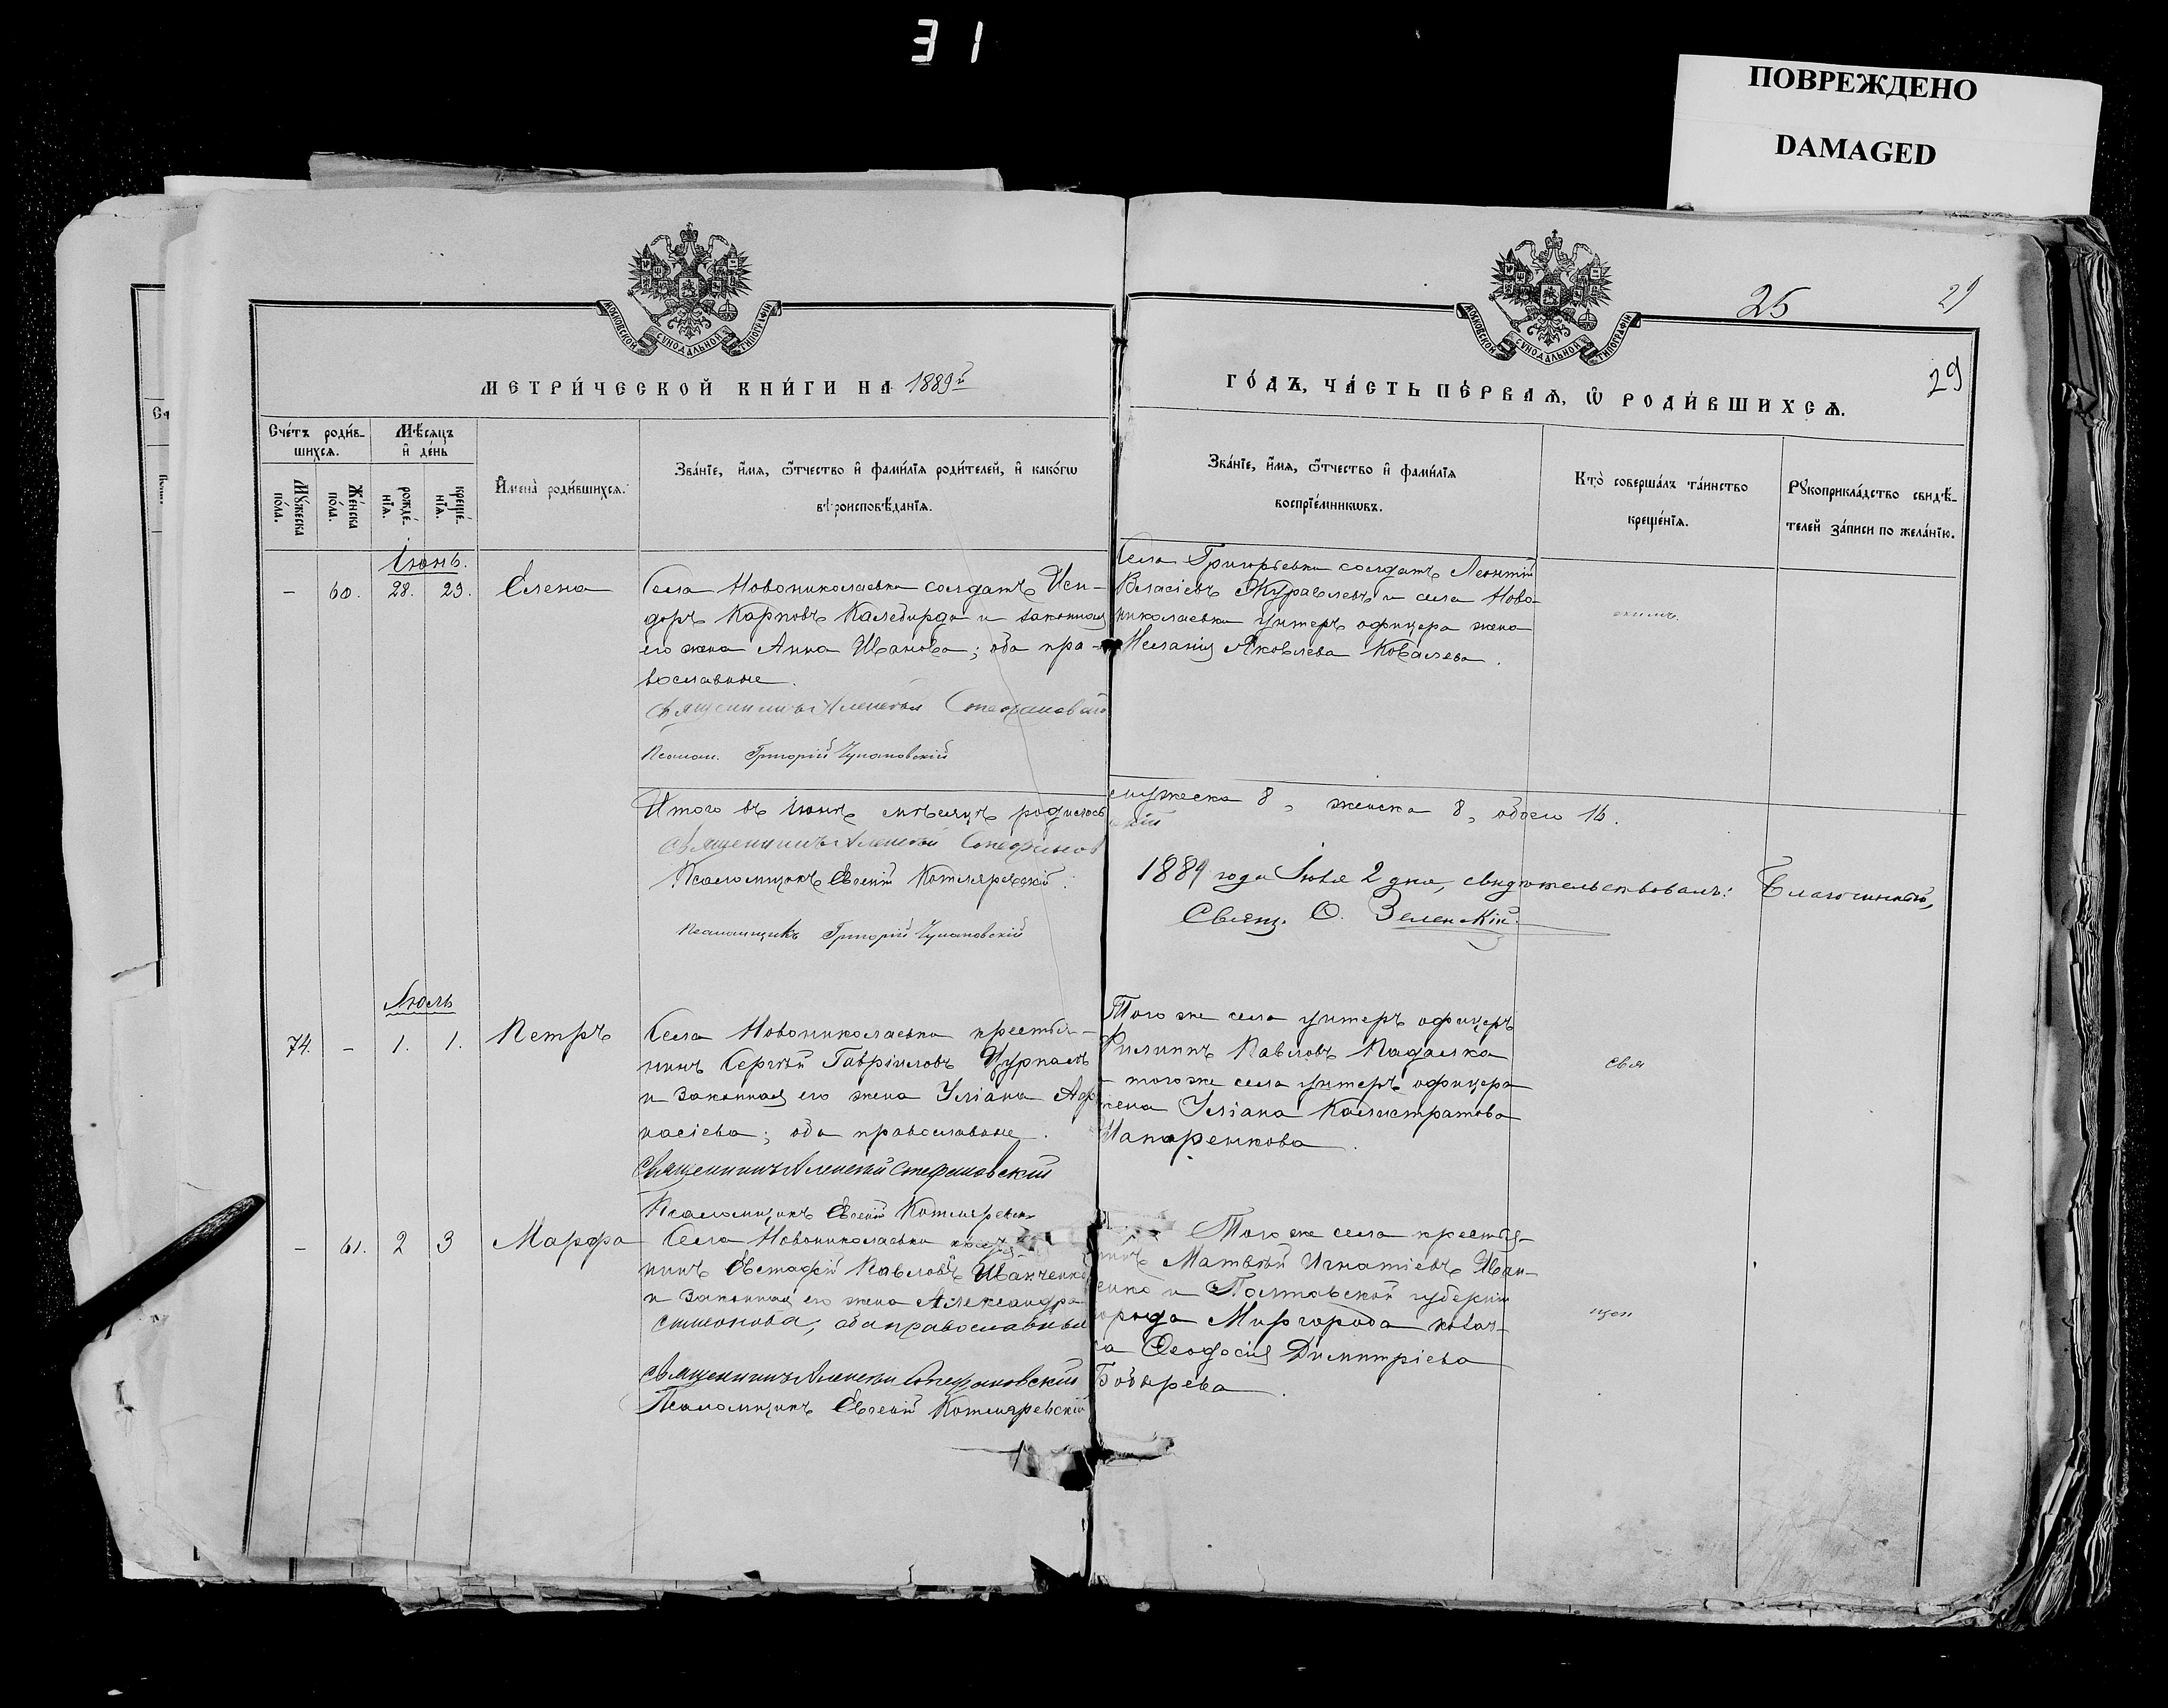 31
ПОВРЕЖДЕНО
DAMAGED
МОСКОВСКОЙ СУНОДАЛЬНОЙ ТИПОГРАФІИ
МОСКОВСКОЙ СУНОДАЛЬНОЙ ТИПОГРАФІИ
25
29
МЕТРИ́ЧЕСКОЙ КНИ́ГИ НА 1889й
ГО́ДЪ, ЧА́СТЬ ПЕ́РВАѦ, Ѿ РОДИ́ВШИХСѦ.
Сче́тъ роди́в-
шихсѧ.
Мѣ́сѧцъ
и҆ де́нь
Мꙋ́жеска
по́ла.
Же́нска
по́ла.
рожде́-
нїѧ.
креще́-
нїѧ.
И҆мена̀ роди́вшихсѧ.
Зва́нїе, и҆́мѧ, ѻ҆́тчество и҆ фами́лїѧ роди́телей, и҆ како́гѡ
вѣроисповѣ́данїѧ.
Зва́нїе, и҆́мѧ, ѻ҆́тчество и҆ фами́лїѧ
воспрїе́мникѡвъ.
Кто̀ соверша́лъ та́инство
креще́нїѧ.
Рꙋкоприкла́дство свидѣ́-
телей за́писи по жела́нїю.
Іюнь.
– 60. 28. 29. Елена
Села Новониколаевки солдатъ Иси-
доръ Карповъ Калебирда и законная
его жена Анна Иванова; оба пра-
вославные.
Священникъ Алексѣй
Псалом. Григорій
Села Григорьевки солдатъ Леонтій
Власіевъ Журавлевъ и села Ново-
николаевки унтеръ офицера жена
Меланія Яковлева Ковалева.
Итого въ Іюнѣ мѣсяцѣ родилось
мужеска 8, женска 8, обоего 16.
Священникъ Алексѣй
Псаломщикъ Евгеній Котляревскій.
Псаломщикъ Григорій
1889 года Іюля 2 дня, свидѣтельствовалъ: Благочинный,
Свящ. О. Зеленскій.
Іюль
74. – 1. 1. Петръ
Села Новониколаевки крестья-
нинъ Сергѣй Гавріиловъ Цуркалъ
и законная его жена Уліана Афа
насіева; оба православные.
Священникъ Алексѣй Стефановскій
Псаломщикъ Евгеній Котляревск
Того же села унтеръ офицеръ
Филиппъ Павловъ Падалка
того же села унтеръ офицера
жена Уліана Каллистратова
Шапаренкова.
свя
– 61. 2 3 Марфа
Села Новониколаевки
нинъ Евстафій Павловъ Иванченко
и законная его жена Александра
Симеонова, оба православные
Священникъ Алексѣй Стефановскій
Псаломщикъ Евгеній Котляревскій
Того же села крестья-
нинъ Матвѣй Игнатіевъ Иван-
енко и Полтавской губерніи
города Миргорода козач-
ка Ѳеодосія Димитріева
Бобырева.
щен